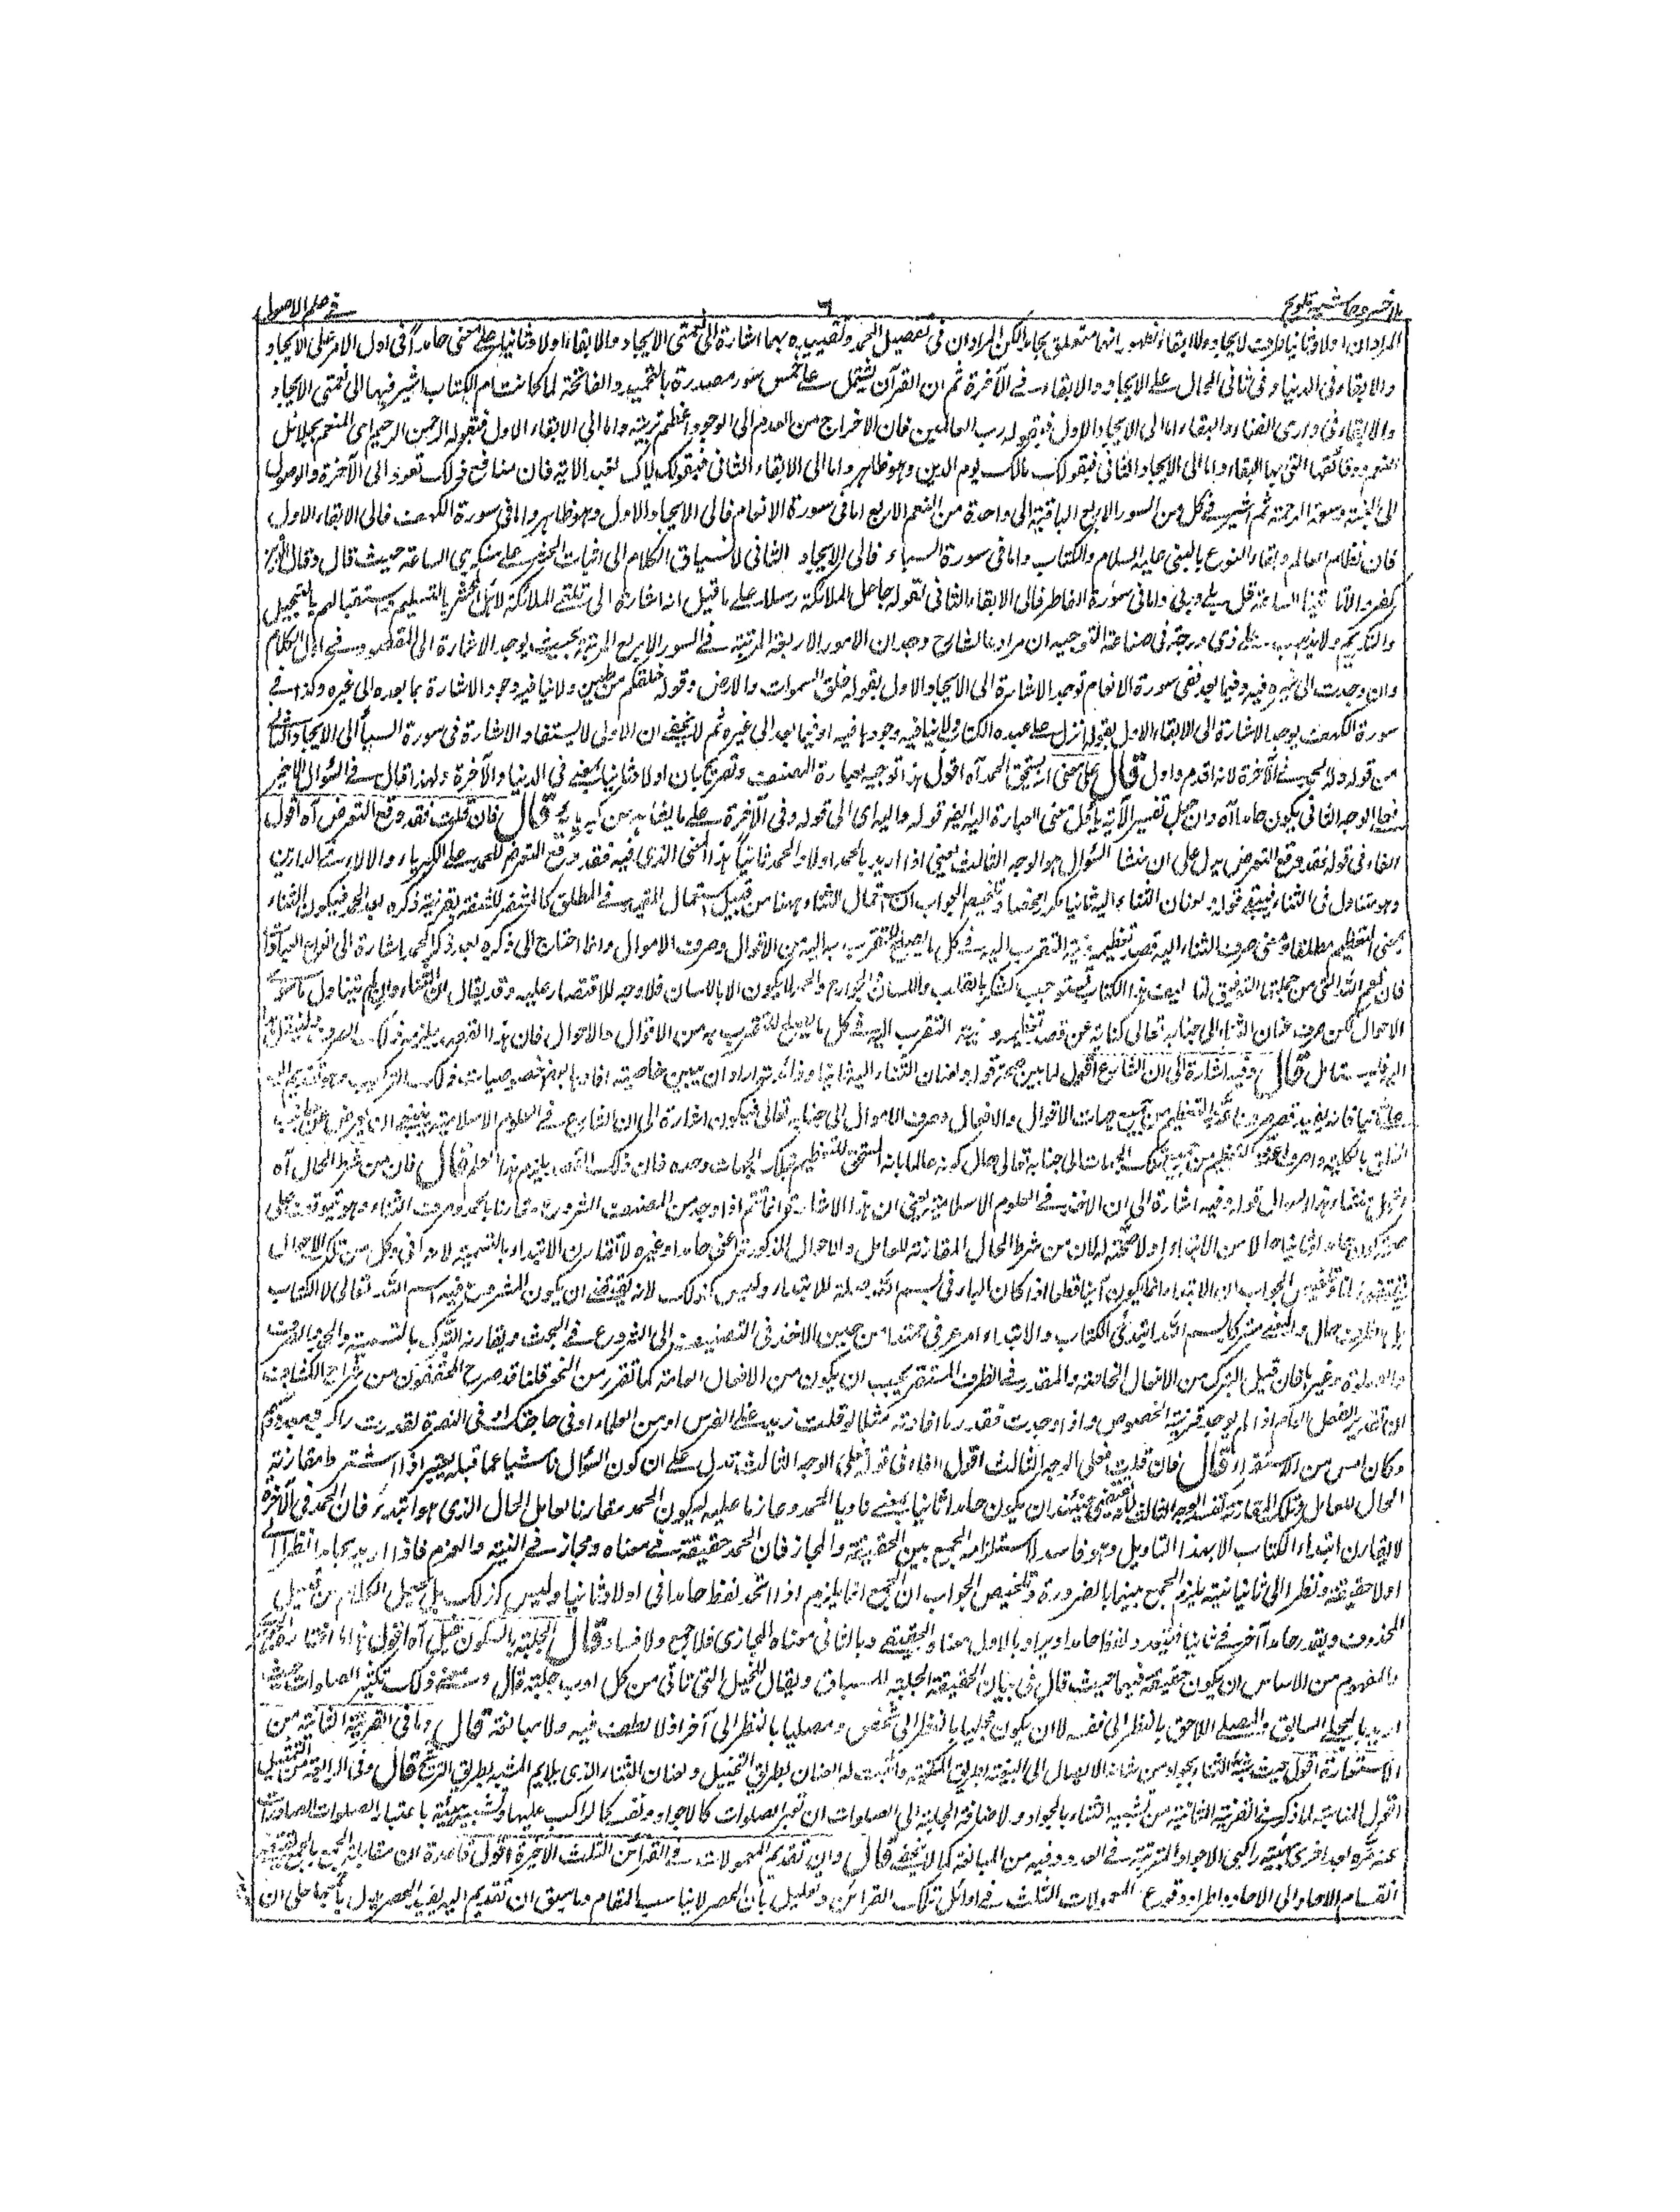 ملا خسرو حاشية تلويح
٦
في علم الاصول
المراد ان اولا وثانيا ظرفت لايجاد ولا ابقاء لظهور انهما متعلق بحامد الكن المراد ان في تفصيل الحمد وتعقيبه بهما اشارة الى نعمتى الايجاد والابقاء اولا وثانيا على معنى حامدا فى اول الامر على الايجاد
والابقاء فى الدنيا وفى ثانى الحال على الايجاد والابقاء فى الآخرة ثم ان القرآن يشتمل على خمس سور مصدرة بالتحميد والفاتحة لما كانت ام الكتاب اشير فيها الى نعمتى الايجاد
والابقاء فى دارى الفناء والبقاء اما الى الايجاد الاول فبقوله رب العالمين فان الاخراج من العدم الى الوجود اعظم تربية واما الى الابقاء الاول فبقوله الرحمن الرحيم اى المنعم بجلائل
النعم ودقائقها التى بها البقاء واما الى الايجاد الثانى فبقوله مالك يوم الدين وهو ظاهر واما الى الابقاء الثانى فبقوله اياك نعبد الآية فان منافع ذلك تعود الى الآخرة والوصول
الى الجنة وسعة الرحمة ثم اشير فى كل من السور الاربع الباقية الى واحدة من النعم الاربع اما فى سورة الانعام فالى الايجاد الاول وهو ظاهر واما فى سورة الكهف فالى الابقاء الاول
فان نظام العالم وبقاء النوع بالنبى عليه السلام والكتاب واما فى سورة السباء فالى الايجاد الثانى لانسياق الكلام الى اثبات الحشر على منكرى الساعة حيث قال وقال الذين
كفروا لا تأتينا الساعة قل بلى وربى واما فى سورة الفاطر فالى الابقاء الثانى لقوله جاعل الملائكة رسلا على ما قيل انه اشارة الى تلقى الملائكة لاهل الحشر بالتسليم واستقبالهم بالتبجيل
والتكريم ولا يذهب على ذى درجة فى صناعة التوجيه ان مراد الشارح وجدان الامور الاربعة المرتبة فى السور الاربع المرتبة بحيث يوجد الاشارة الى المقصود فى اول الكلام
وان وجدت الى غيره فيه وفيما بعد ففى سورة الانعام توجد الاشارة الى الايجاد الاول بقوله خلق السموات والارض وقوله خلقكم من طين ولا ينافيه وجود الاشارة بما بعده الى غيره وكذا فى
سورة الكهف يوجد الاشارة الى الابقاء الاول بقوله انزل على عبده الكتاب ولا ينافيه وجودها فيه او فيما بعد الى غيره ثم لا يخفى ان الاولى لا يستفاد الاشارة فى سورة السبأ الى الايجاد الثانى
من قوله وله الحمد فى الآخرة لانه اقدم واول قال على معنى انه يستحق الحمد آه اقول هذا توجيه لعبارة المصنف وتصريح بان اولا وثانيا بمعنى فى الدنيا والآخرة ولهذا قال فى السؤال الاخير
فعلى الوجه الثانى يكون حامدا آه وان جعل تفسير الآية قال فان قلت فقد وقع التعرض آه اقول
الفاء فى قوله فقد وقع التعرض يدل على ان منشأ السؤال هو الوجه الثالث يعنى اذا اريد بالحمد اولا والحمد ثانيا هذا المعنى الذى فيه فقد وقع التعرض للحمد على الكبرياء والآلاء فى الدارين
وهو متناول فى الثناء فيبقى قوله ولعنان الثناء اليه ثانيا مكررا محضا وتلخيص الجواب ان استعمال الثناء ههنا من قبيل استعمال المقيد فى المطلق كالمشفر للشفة بقرينة ذكره بعد الحمد فيكون الثناء
بمعنى التعظيم مطلقا ومعنى صرف الثناء اليه قصد تعظيمه ونية التقرب اليه فى كل ما يصلح للتقرب به اليه من الاقوال وصرف الاموال وانما احتاج الى ذكره بعد ذكر الحمد اشارة الى انواع العبادة
فان نعم الله التى من جملتها التوفيق لتاليف هذا الكتاب يستوجب الشكر بالقلب واللسان والجوارح والحمد لا يكون الا باللسان فلا وجه للاقتصار عليه وقد يقال ان الثناء وان لم يتناول
الاحوال لكن صرف عنان الثناء الى جنابه تعالى كناية عن قصد تعظيمه ونية التقرب اليه فى كل ما يصلح للتقرب به من الاقوال والاحوال فان هذا القصد يلزمه ذلك
قال وفيه اشارة الى ان الشارع اقول لما بين جهة قوله ولعنان الثناء اليه ثانيا وفائدته اراد ان يبين خاصية افادها بخصوصيات ذلك التركيب وهو تقديم اليه
من جميع جهات الاقوال والافعال وصرف الاموال الى جنابه تعالى فيكون اشارة الى ان الشارع فى العلوم الاسلامية ينبغى ان يعرض
الى جنابه تعالى حال كونه عالما بانه المستحق للتعظيم بتلك الجهات وحده فان ذلك القصد يلزم هذا العلم قال فان من شرط الحال آه
قوله وفيه اشارة الى ان الاخذ فى العلوم الاسلامية يعنى ان هذا الاشارة انما تتم اذا وجد من المصنف الشروع مقارنا بالحمد وصرف الثناء وهو يتوقف على
لان من شرط الحال المقارنة للعامل والاحوال المذكورة اعنى حامدا وغيره لا تقارن الابتداء بالتسمية
وتلخيص الجواب ان الابتداء انما يكون آنيا قطعا اذا كان الباء فى بسم الله صلة للابتداء وليس كذلك لانه يقتضى ان يكون المشروع فيه اسم الله تعالى لا الكتاب
بل الظرف حال والمعنى متبركا بسم الله ابتدئ الكتاب والابتداء امر عرفى ممتد من حين الاخذ فى التصنيف الى الشروع فى البحث ويقارنه التبرك بالتسمية والحمد
والصلوة وغيرها فان قيل التبرك من الافعال الخاصة والمقدر فى الظرف المستقر يجب ان يكون من الافعال العامة كما تقرر من النحو قلنا قد صرح المحققون من شراح الكشاف
ان تقدير الفعل العام اذا لم يوجد قرينة الخصوص واذا وجدت فقد ربما افادته كثيرا لو قلت زيد على الفرس او من العلماء او فى حاجتك او فى البصرة لقدرت راكب ومعدود ومهتم
وكائن امس من الاستقرار قال فان قلت فعلى الوجه الثالث اقول الفاء فى قوله فعلى الوجه الثالث تدل على ان كون السؤال ناشيا عما قبله يعنى اذا اشترط مقارنة
الحال للعامل ان يكون حامدا ثانيا بمعنى ناويا للحمد وعازما عليه ليكون الحمد مقارنا لعامل الحال الذى هو ابتدئ فان الحمد فى الآخرة
لا يقارن ابتداء الكتاب الا بهذا التاويل وهو فاسد لاستلزامه الجمع بين الحقيقة والمجاز فان الحمد حقيقة فى معناه ومجاز فى النية والعزم فاذا اريد بحامد انظر الى
اولا حقيقة ونظرا الى ثانيا نية يلزم الجمع بينهما بالضرورة وتلخيص الجواب ان الجمع انما يلزم اذا اتحد لفظ حامدا فى اولا وثانيا وليس كذلك بل يجعل الكلام من قبيل
المحذوف ويقدر حامدا آخر فى ثانيا ويراد بالاول معناه الحقيقى وبالثانى معناه المجازى فلا جمع ولا فساد قال الحلبة بالسكون خيل آه اقول
والمفهوم من الاساس ان يكون حقيقة فيهما حيث قال فى بيان الحقيقة الحلبة للسباق ويقال للخيل التى تاتى من كل اوب حلبة قال ومعنى ذلك تكثير الصلوات
اريد بالمجلى السابق والمصلى اللاحق بالنظر الى نفسه لا ان يكون مجليا بالنظر الى شخص ومصليا بالنظر الى آخر اذ لا لطف فيه ولا مبالغة قال وما فى القرينة الثانية من
الاستعارة اقول حيث شبه الثناء بجواد من شانه الايصال الى البغية بطريق المكنية واثبت له العنان بطريق التخييل ولعنان الثناء الذى يلايم المشبه بطريق الترشيح قال وفى الرابعة من التمثيل
اقول المناسبة لما ذكر فى القرينة الثانية من تشبيه الثناء بالجواد ولاضافة الحلبة الى الصلوات ان تعتبر الصلوات كالاجواد ونفسه كالراكب عليها
عنه مرة بعد اخرى بهيئة راكبى الاجواد المترتبة فى العدو وفيه من المبالغة كما لا يخفى قال وان تقديم المعمولات فى القرائن الثلث الاخيرة اقول قاعدة ان مقابلة الجمع بالجمع
انقسام الاحاد الى الاحاد والمراد وقوع المعمولات الثلث فى اوائل تلك القرائن وتعليل بأن الحصر لا يناسب المقام وما سبق ان تقديم اليه يفيد الحصر